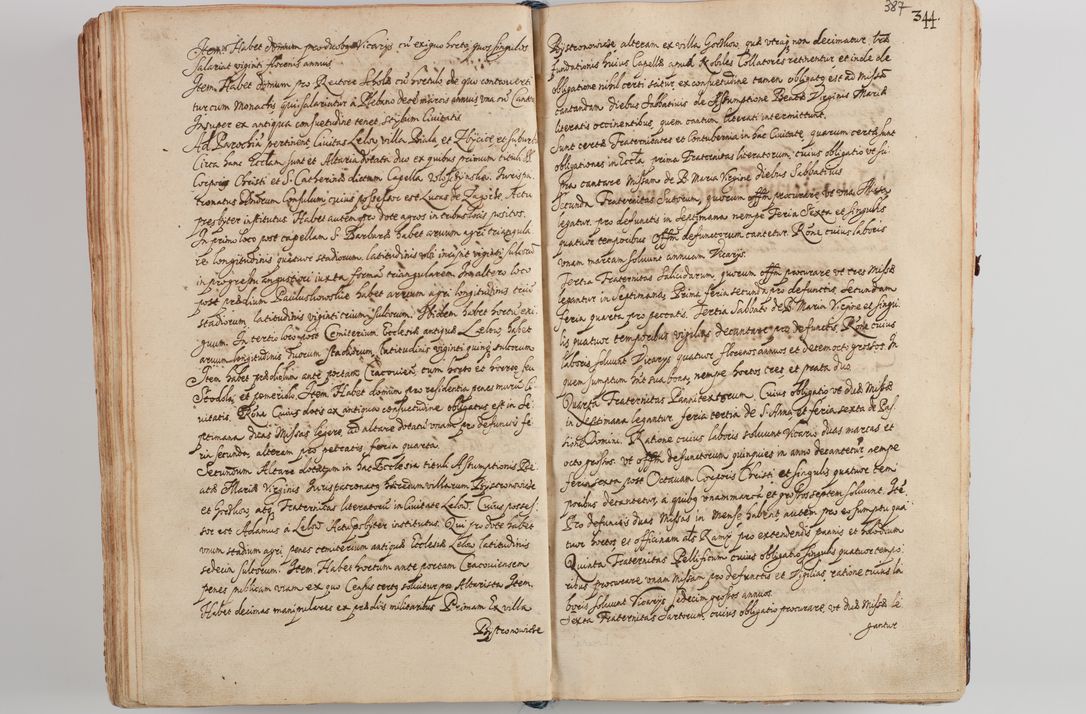 Item Habet domum pro duobus Vicarijs cū exiguo horto quos singulos
salariat viginti florenis annuis
Item Habet domum pro Rectore scholæ cū hortulo de quo controvertitur
tur cum Monachis qui salariuntur à Plebano decē marcis annuis una cū Cantor
Insuper ex antiqua consuetudine tenet scribam Civitatis
Ad Parochiā pertinent Civitas Lelow villa Biala et Zbyczice et suburb
Circa hanc Ecclam sunt et Altaria dotata duo ex quibus primum tituli SS
Corporis Christi et S. Catherinæ dictum Capella Juris pa
tronatus Dñorum Consulum cuius possessor est Lucas de Actu
presbyter institutus. Habet autem pro dote agros in tribus locis positos.
In primo loco post capellam S. Barbaræ habet arvum agri triangula
re longitudinis quatuor stadiorum, latitudinis ubi incipit viginti sulcorū
in progressu angustiori iuxta formā triangularem. In altero loco
post prædium habet arvum agri longitudinis triū
stadiorum, latitudinis viginti trium sulcorum. Ibidem habet hortū exi
guum. In tertio loco post Cœmiterium Ecclesiæ antiquæ Lelow habet
arvum longitudinis duorum stadiorum, latitudinis viginti quinq sulcorum
Item habet prædiolum ante portam Cracovien̄ cum horto et horreo seu
Stodola, et pomeriolo. Item Habet domum pro residentia penes murū Ci
vitatis. Rōne Cuius dotis ex antiqua consuetudine obligatus est in Se
ptimana duas Missas legere, ad altare dotatū unam pro defunctis fe
ria secunda, alteram pro peccatis feria quarta.
Secundum Altare dotatum in hac Ecclesia tituli Assumptionis Be
atæ Mariæ Virginis Iuris patronatq hæredum villarum Bystronowice
et Grodkow, atq Fraternitas literatorū in Civitate Lelow. Cuius posses
sor est Adamus à Lelow Actu psbyter institutus. Qui pro dote habet
unum stadium agri penes cœmiterium antiquæ Ecclesiæ Lelow latitudinis
sedecim sulcorum. Item Habet hortum ante portam Cracoviensem
penes publicam viam ex quo Census certq solvitur pro Altarista. Item
Habet decimas manipulares ex prædijs militaribus Primam Ex villa
Bystronowice
387
344.
Bystronowice alteram ex villa Grodkow, quæ utraq non decimatur, lræ
fundationis huius Capellæ apud Nobiles Collatores retinentur et inde de
obligatione nihil certi scitur, ex consuetudine tamen obligatq est ad Missā
cantandam diebus Sabbativis de Assumptione Beatæ Virginis Mariæ
literatis occinentibus, quem cantum literati intermittunt.
Sunt certæ Fraternitates et Contubernia in hac Civitate quarum certæ sunt
obligationes in Eccla. prima Fraternitas literatorum, cuius obligatio ut su
pra cantare Missam de B. Maria Virgine diebus Sabbativis
Secunda Fraternitas Sutorum, quorum offm procurare ut una Missa
legatur pro defunctis in Septimana nempe Feria Sexta et singulis
quatuor temporibus offm defunctorum cantetur. Rōne cuius laboris
unam marcam solvunt annuam Vicarijs.
Tertia Fraternitas Salicidarum, quorum offm procurare ut tres Missæ
legantur in Septimana, Prima feria secunda pro defunctis, Secundam
feria quarta pro peccatis. Tertia Sabbato de B. Maria Virgine et singu
lis quatuor temporibus vigilias decantare pro defunctis. Rōne cuius
laboris solvunt Vicarijs quatuor florenos annuos et decem octo grossos. In
quem sumptum hæc sua bona, nempe hortos tres et prata duo
Quarta Fraternitas Pannitextorum, Cuius obligatio ut duæ Missæ
in Septimana legantur feria tertia de S. Anna et feria sexta de Pas
sione Domini. Ratione cuius laboris solvunt Vicario duas marcas et
octo grossos. ut offm defunctorum quinquies in anno decantetur nempe
feria sexta post Octavam Corporis Christi et singulis quatuor tem
poribus decantetur, à quibq unam marcā et grossos septem solvunt. Itē
Pro defunctis duas Missas in mense habent, autem pro eo sumptu qua
tuor hortos et officinam als Ramy pro extendendis pannis et
Quinta Fraternitas Pellificum cuius obligatio singulis quatuor tempo
ribus procurare unam Missam pro defunctis et Vigilias ratione cuius la
boris solvunt Vicarijs sedecim grossos annuos.
Sexta Fraternitas Sartorum, cuius obligatio procurare, ut duæ Missæ le
gantur